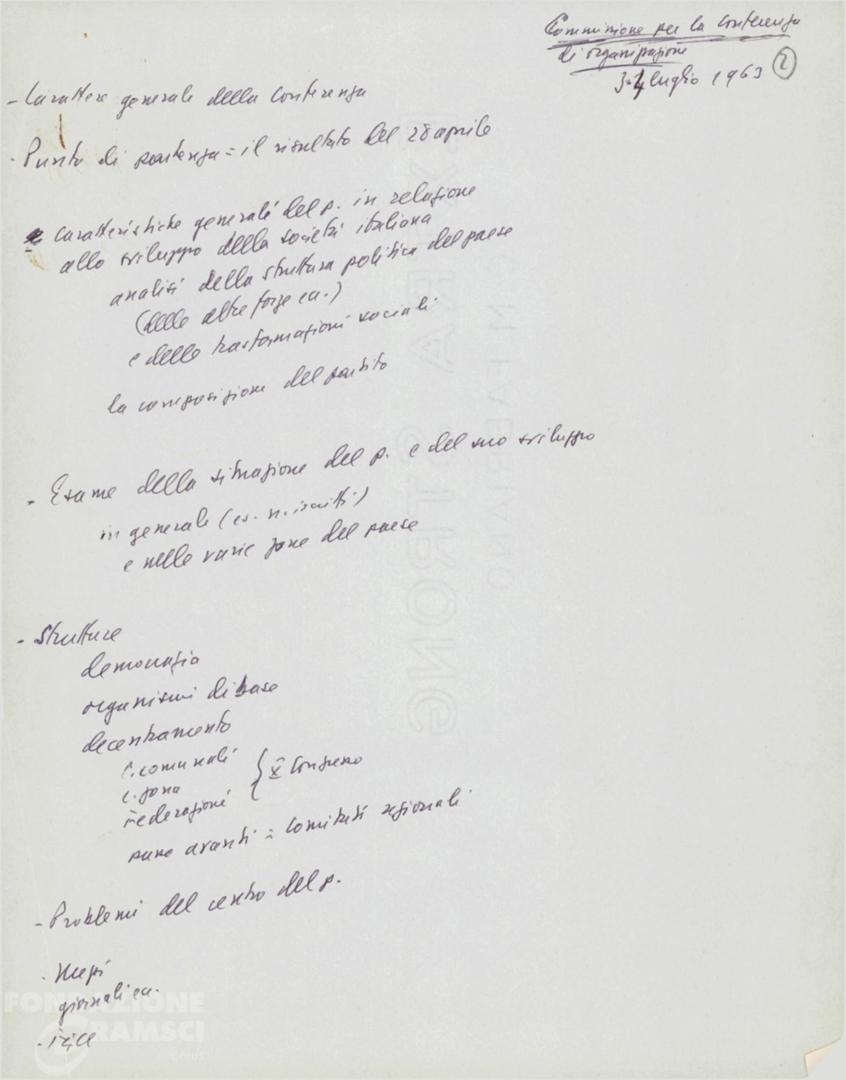 Commissione per la Conferenza
di organizzazione
3-4 luglio 1963 (2)
- Carattere generale della Conferenza
- Punto di partenza = il risultato del 28 aprile
- Caratteristiche generali del p. in relazione
allo sviluppo della società italiana
analisi della struttura politica del paese
(delle altre forze ecc.)
e delle trasformazioni sociali
la composizione del partito
- Esame della situazione del p. e del suo sviluppo
in generale (es. n. iscritti)
e nelle varie zone del paese
- Strutture
democrazia
organismi di base
decentramento
C. comunali
C. zona
Federazioni
} X Congresso
passo avanti = Comitati regionali
- Problemi del centro del p.
- Mezzi
giornali ecc.
- FGCI
EXTRA STRONG
FABRIANO
FONDAZIONE
GRAMSCI